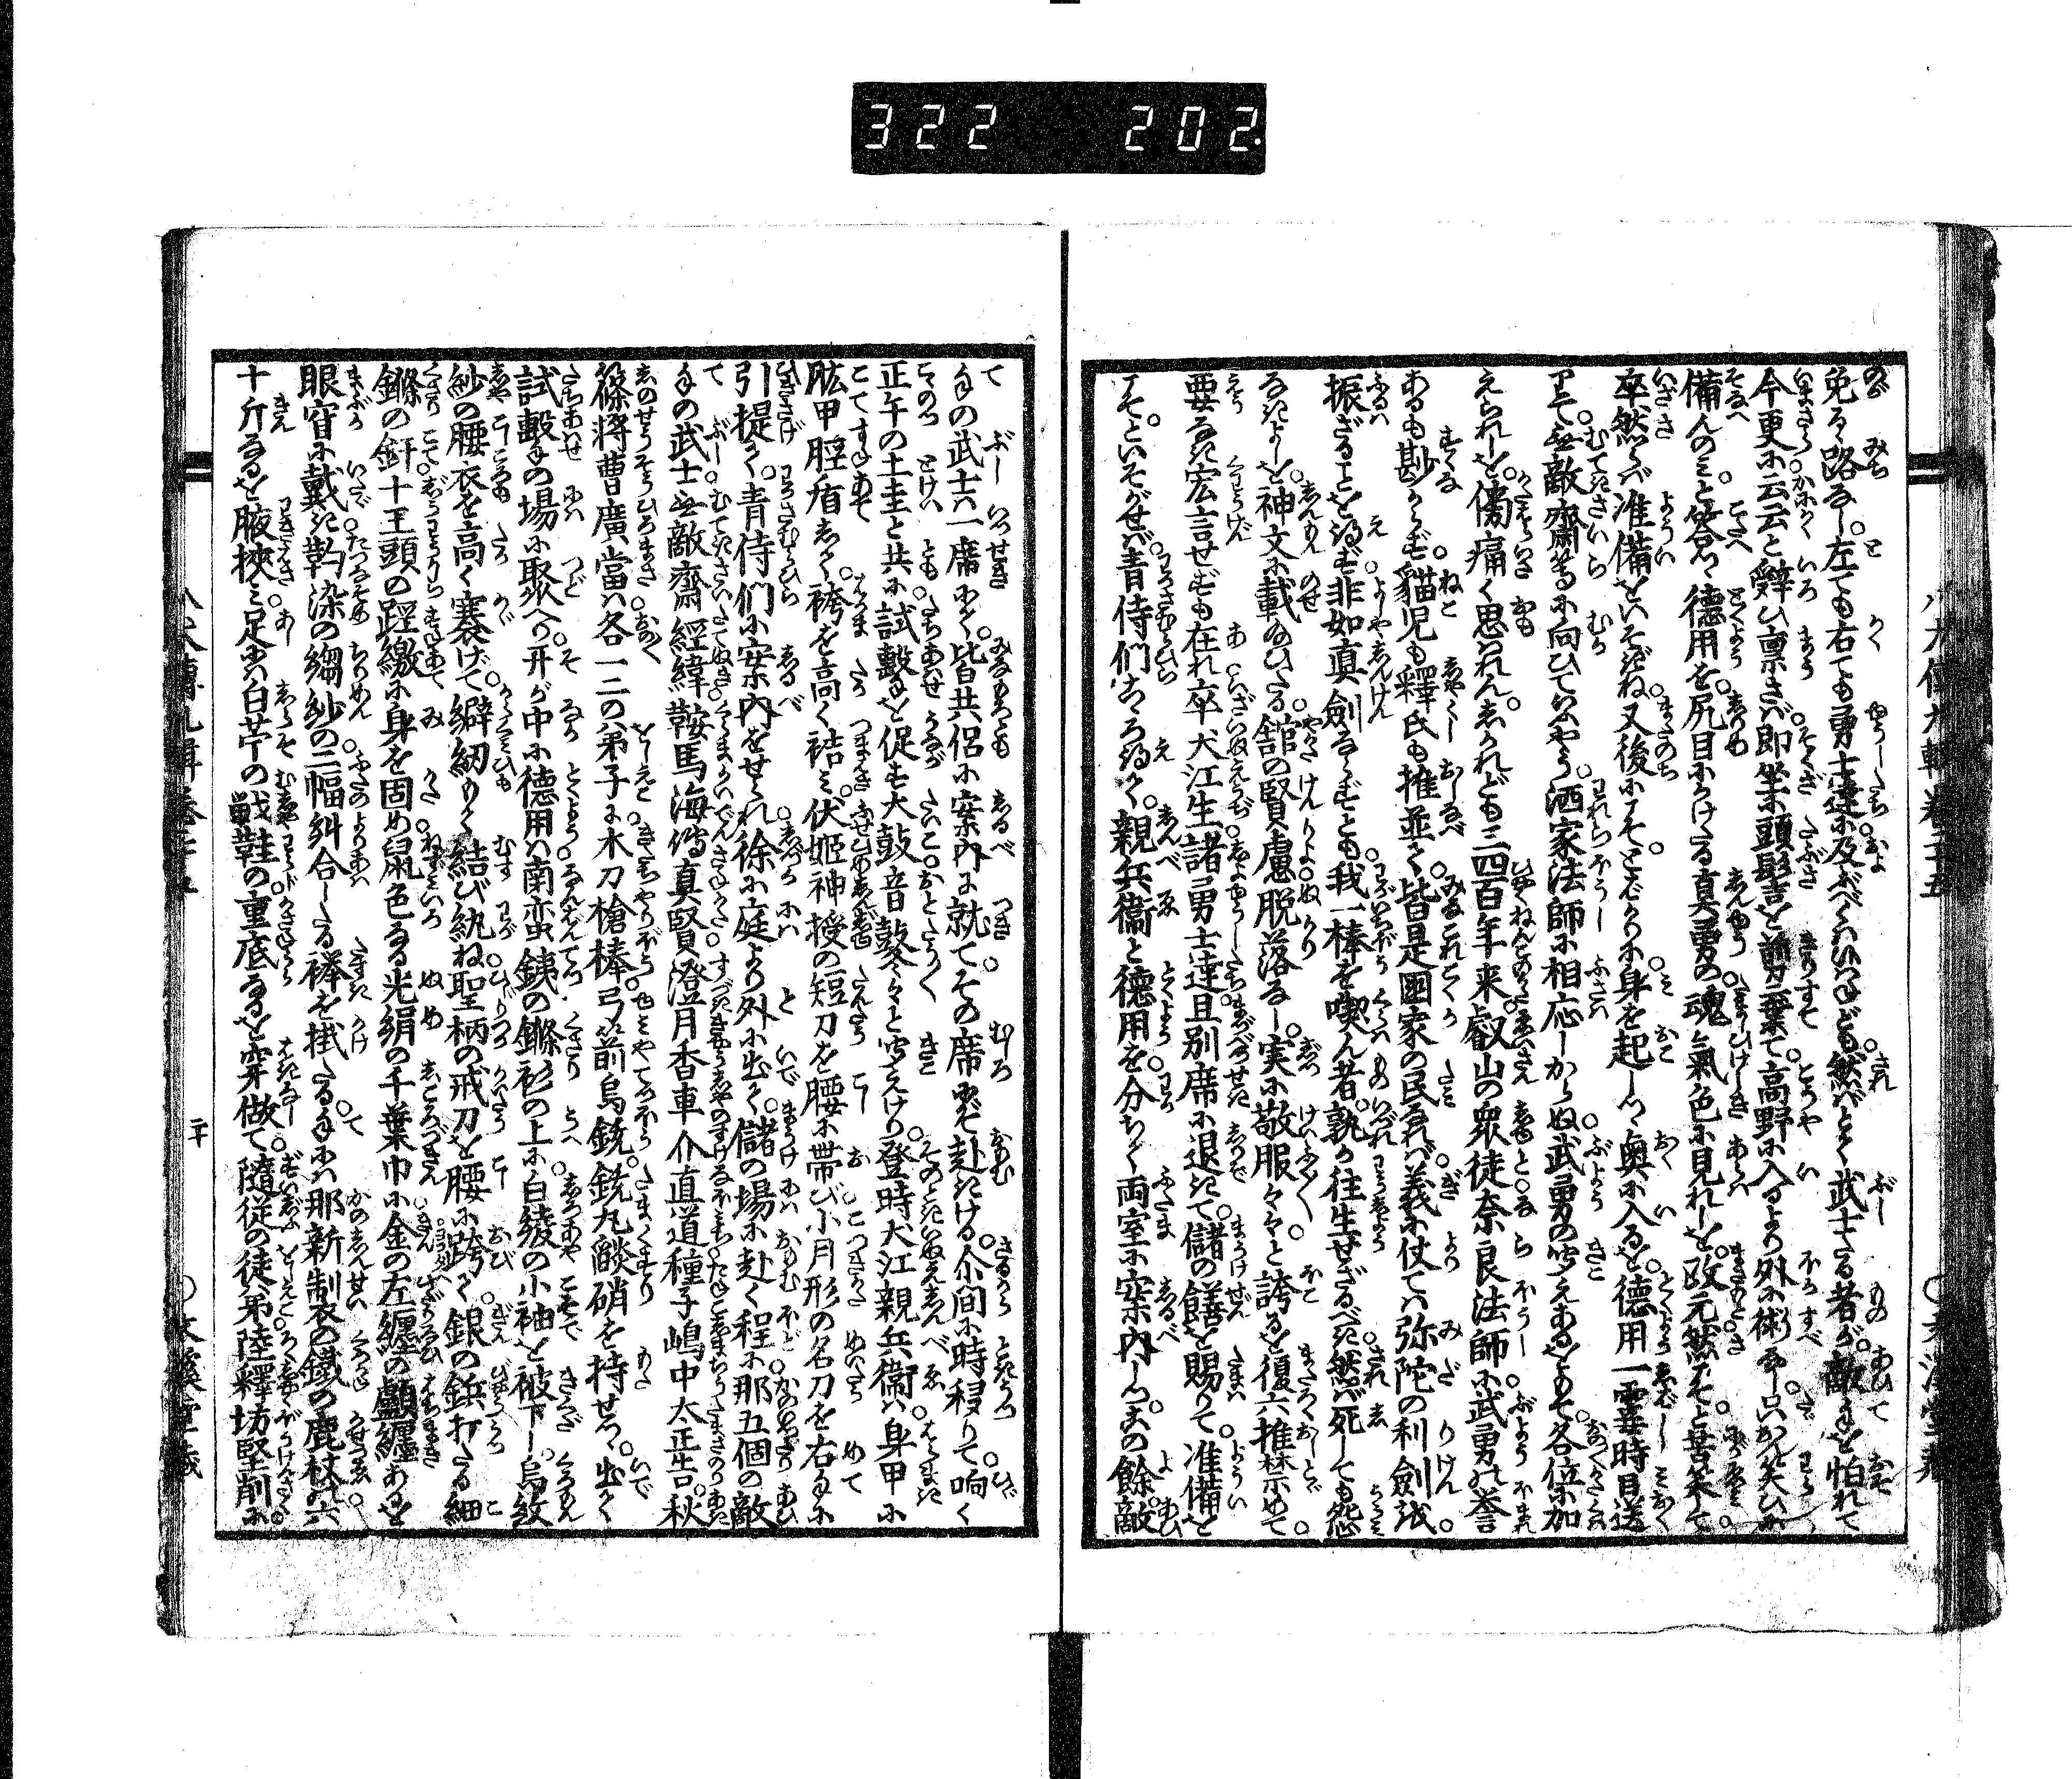 322 202
免るゝ路なし。左ても右ても勇士達に及ぶべくはあらねども。然ばとて武士たる者が。敵手を怕れて
今更に云云と辞ひ稟さば。即坐に頭髻を剪棄て。高野に入るより外に術なし。只おん笑ひに
備んのみ。と答へて徳用を尻目にかけたる真勇の魂。氣色に見れしを。政元然こそと苦笑して
卒然らば准備をいそぎね。又後にこそ。とばかりに身を起しつゝ奥に入るを。徳用一霎時目送
りて。無敵齋等に向ひていふやう。洒家法師に相応しからぬ。武勇の聞えあるをもて。各位に加
えられしを。傍痛く思はれん。しかれども三四百年来。叡山の衆徒奈良法師に。武勇の誉
あるも尠からず。貓児も釋氏も推並て。皆是国家の民なれば。義に仗ては弥陀の利劍を
振ざることを得ず。非如真劍ならずとも。我一棒を喫ん者。孰か往生せざるべき。然ば死しても怨
なきよしを。神文に載給ひたる。舘の賢慮脱落なし。実に敬服々々と誇るを復六推禁めて
要なき宏言せずも在れ。卒犬江生諸勇士達。且別席に退きて。儲の饍を賜りて。准備を
こそ。といそがせば。青侍們こゝろ得て。親兵衛と徳用を。分ちて両室に案内しつ。その餘の敵
手の武士六一席にて。皆共侶に案内に就てその席までぞ赴きける。介間に時移りて。响く
正午の土圭と共に。試轂を促す大鼓音。鼕々と聞えけり。登時犬江親兵衛は。身甲に
肱甲脛盾して。袴を高く結み。伏姫神授の短刀を腰に帯び。小月形の名刀を右手に
引提て。青侍們に案内をせられ。徐に庭より外に出て。儲の場に赴く程に。那五個の敵
手の武士。無敵齋經緯。鞍馬海傳真賢。澄月香車介直道。種子嶋中太正告。秋
篠將曹廣當は。各一二の弟子に木刀槍棒。弓箭鳥銃。銃丸醶硝を持せつゝ。出て
試轂の場に聚へり。そが中に徳用は。南蛮銕の鏈衫の上に。白綾の小袖を被下し。烏紋
紗の腰衣を高く褰げて。縧紉めて結び紈ね。聖柄の戒刀を腰に跨て。銀の鋲打たる細
鏈の釬。十王頭の踁繳に身を固め。鼠色なる光絹の千葉巾に。金の左纏の顱纏あるを
眼窅に戴き。靹染の縐紗の二幅糾合したる襷を掛たる。手には那新制衣の鐵の鹿杖の六
十斤なるを腋挾み。足には白苧の戰鞋の重底なるを穿做て。隨従の徒弟。陸釋坊堅削に